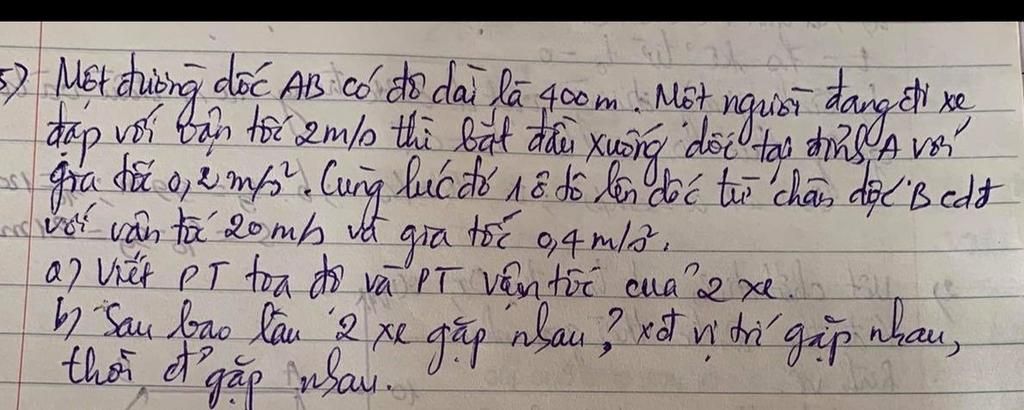 5) Một đường dốc AB có độ dài là 400m. Một người đang đi xe
đạp với vận tốc 2m/s thì bắt đầu xuống dốc tại đỉnh A với
gia tốc 0,2m/s². Cùng lúc đó 1 ô tô lên dốc từ chân dốc B cdđ
với vận tốc 20m/s và gia tốc 0,4m/s².
a) Viết PT tọa độ và PT vận tốc của 2 xe.
b) Sau bao lâu 2 xe gặp nhau? xđ vị trí gặp nhau,
thời đ' gặp nhau.